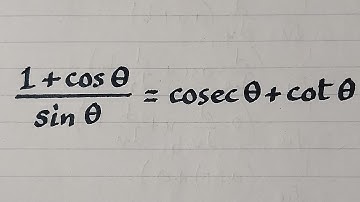 (1 + cos θ) / sin θ = cosec θ + cot θ